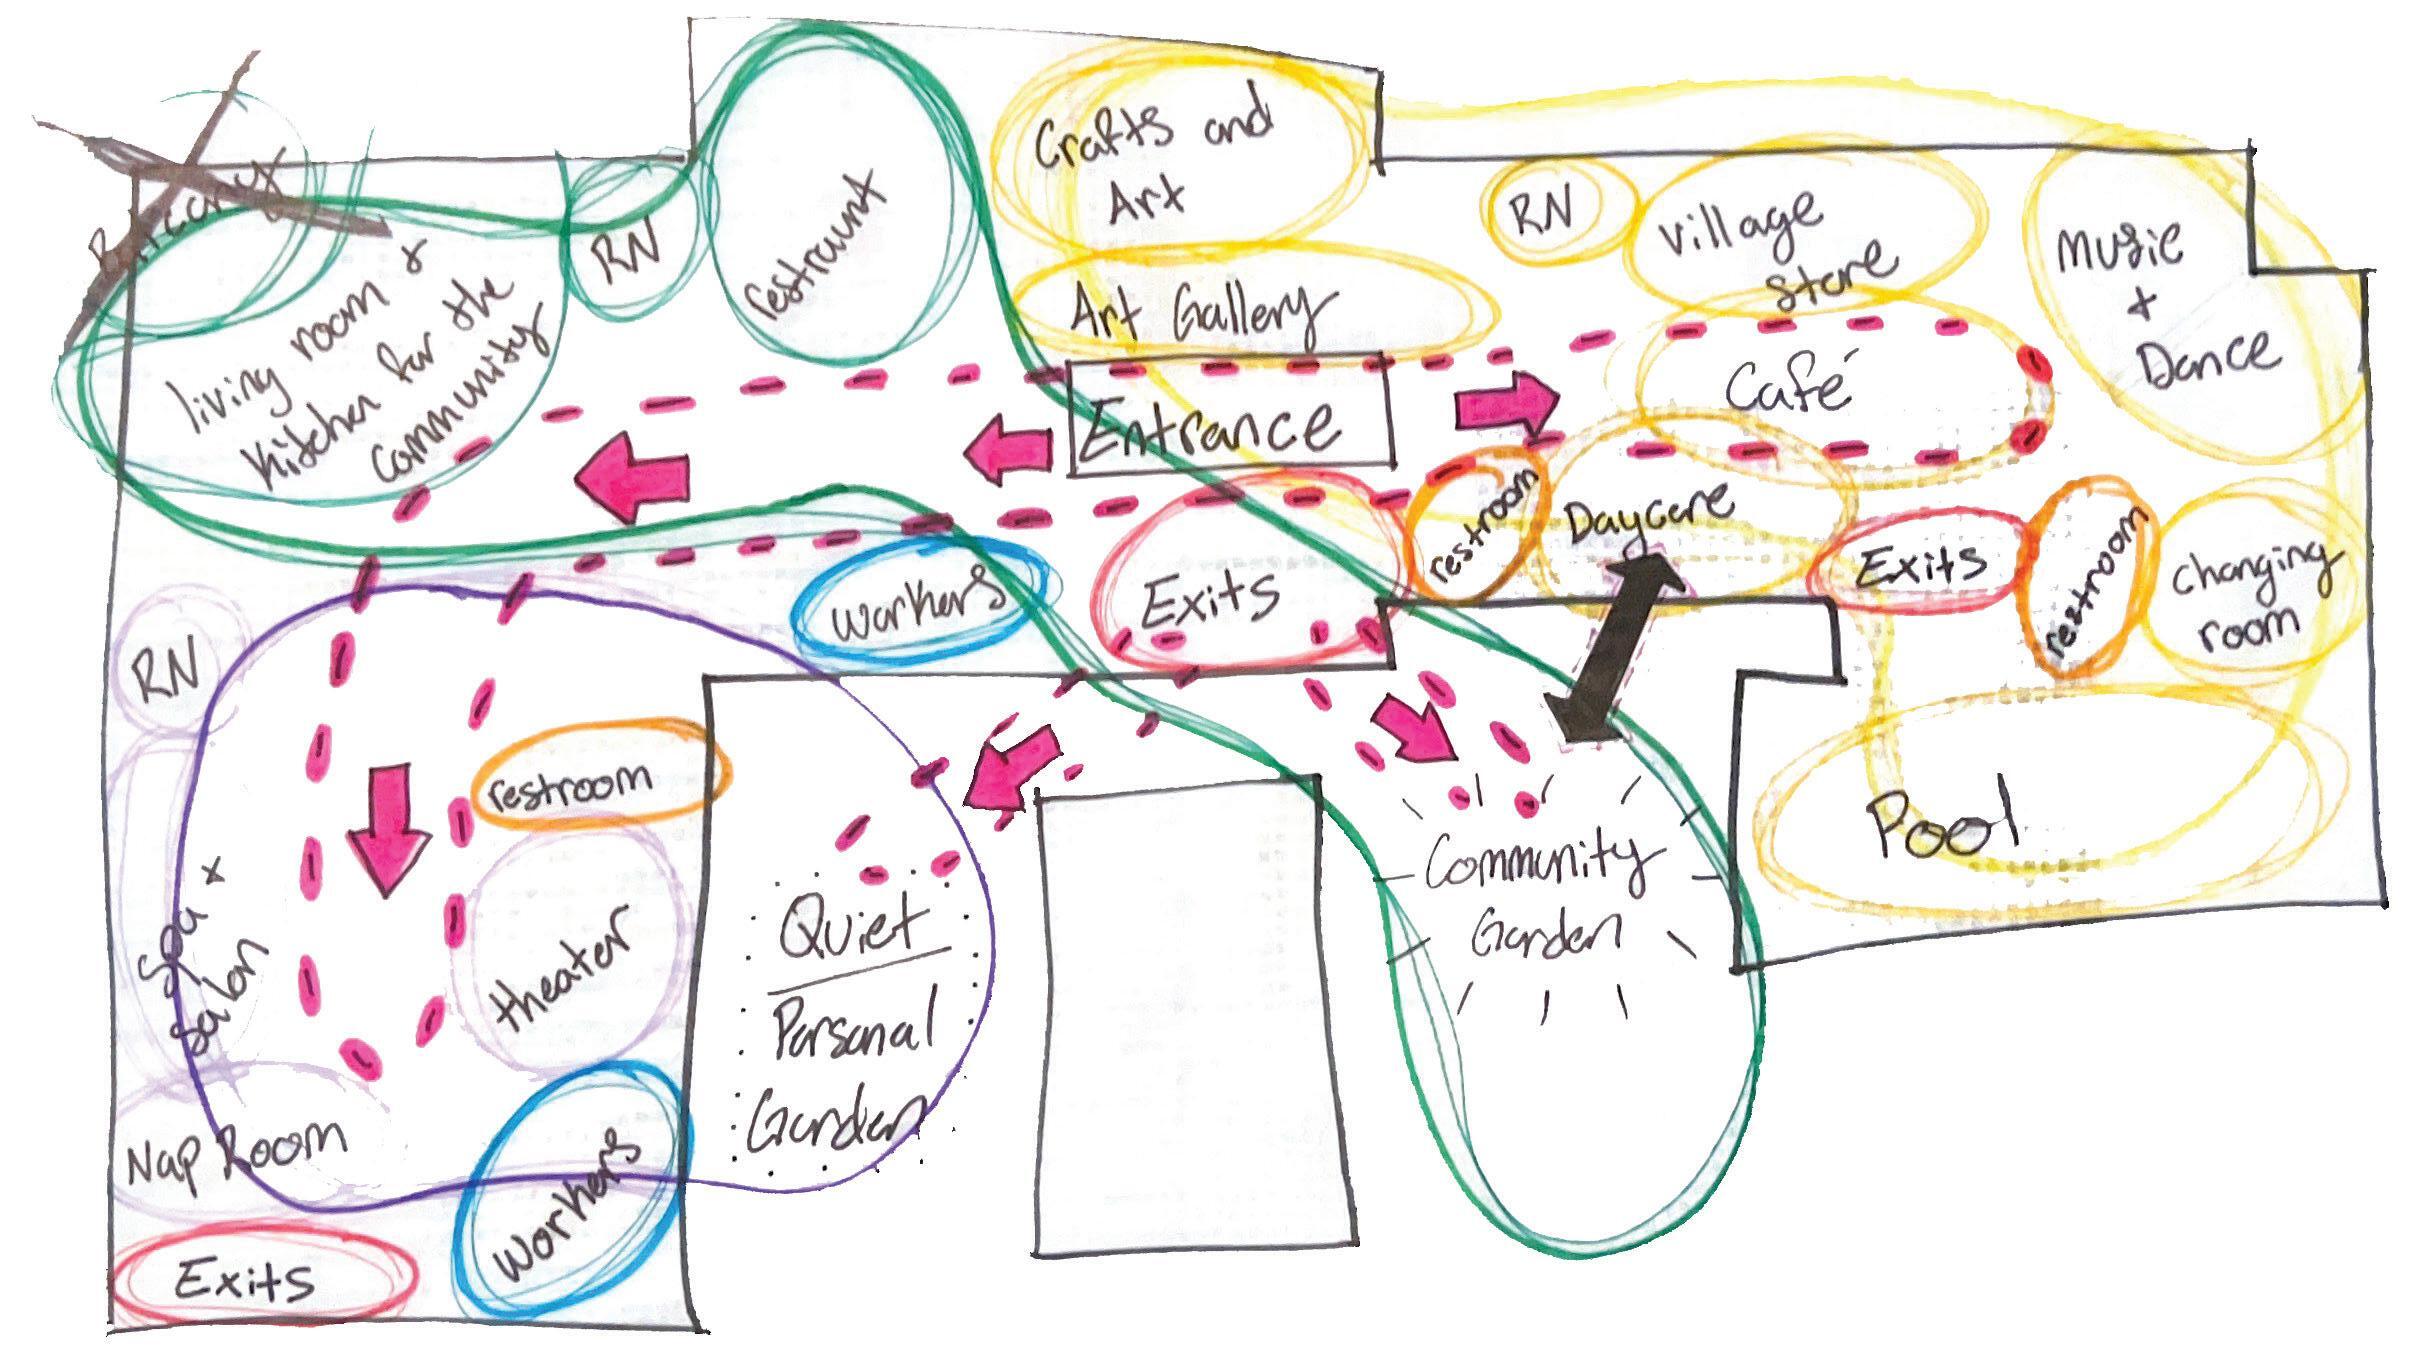 Crafts and
Art
RN
restraunt
RN
Village
Store
Music
+
Dance
living room +
Kitchen for the
Community
Art Gallery
Café
Entrance
restroom
Daycare
Exits
restroom
Changing
room
workers
Exits
RN
restroom
Pool
Spa +
Salon
theater
Quiet
Personal
Garden
Community
Garden
Nap Room
Workers
Exits